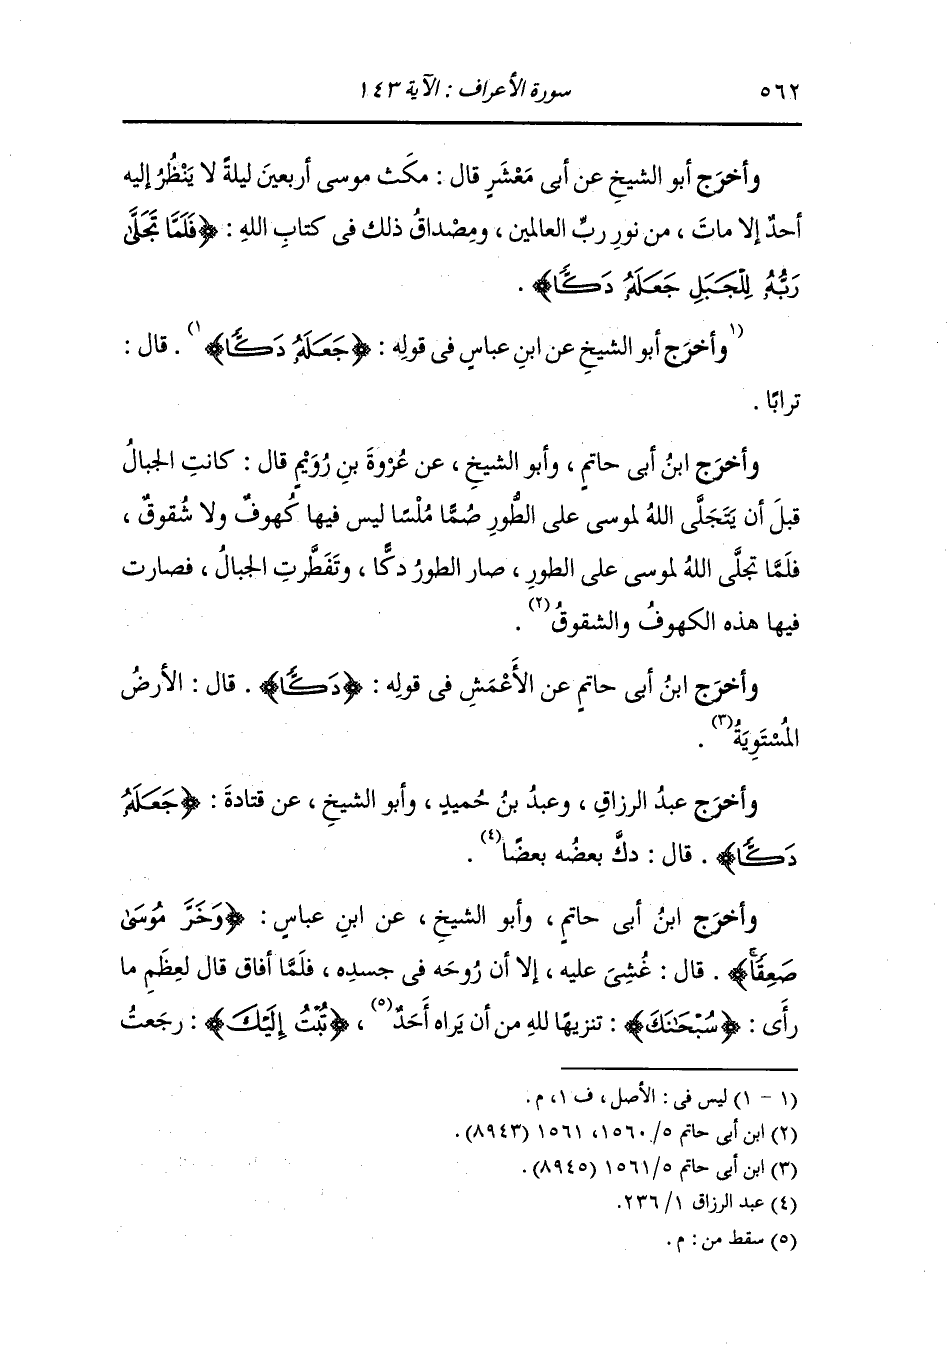 ٥٦٢ سورة الأعراف : الآية ١٤٣
وأخرَج أبو الشيخِ عن أبى مَعْشَرٍ قال : مكَث موسى أربعينَ ليلةً لا يَنْظُرُ إليه
أحدٌ إلا ماتَ ، من نورِ ربِّ العالمين ، ومِصْداقُ ذلك فى كتابِ اللهِ : ﴿فَلَمَّا تَجَلَّىٰ
رَبُّهُۥ لِلْجَبَلِ جَعَلَهُۥ دَكًّا﴾ .
(١وأخرَج أبو الشيخِ عن ابنِ عباسٍ فى قولِه : ﴿جَعَلَهُۥ دَكًّا﴾١) . قال :
ترابًا .
وأخرَج ابنُ أبى حاتمٍ ، وأبو الشيخِ ، عن عُرْوةَ بنِ رُوَيْمٍ قال : كانتِ الجبالُ
قبلَ أن يَتَجَلَّى اللهُ لموسى على الطُّورِ صُمًّا مُلْسًا ليس فيها كُهوفٌ ولا شُقوقٌ ،
فلَمَّا تجلَّى اللهُ لموسى على الطورِ ، صار الطورُ دكًّا ، وتَفَطَّرتِ الجبالُ ، فصارت
فيها هذه الكهوفُ والشقوقُ(٢) .
وأخرَج ابنُ أبى حاتمٍ عن الأَعْمَشِ فى قولِه : ﴿دَكًّا﴾ . قال : الأرضُ
المُسْتَوِيَةُ(٣) .
وأخرَج عبدُ الرزاقِ ، وعبدُ بنُ حُميدٍ ، وأبو الشيخِ ، عن قتادةَ : ﴿جَعَلَهُۥ
دَكًّا﴾ . قال : دكَّ بعضُه بعضًا(٤) .
وأخرَج ابنُ أبى حاتمٍ ، وأبو الشيخِ ، عن ابنِ عباسٍ : ﴿وَخَرَّ مُوسَىٰ
صَعِقًا﴾ . قال : غُشِىَ عليه ، إلا أن رُوحَه فى جسدِه ، فلَمَّا أفاق قال لعِظَمِ ما
رأَى : ﴿سُبْحَـٰنَكَ﴾ : تنزيهًا للهِ من أن يَراه أَحَدٌ(٥) ، ﴿تُبْتُ إِلَيْكَ﴾ : رجَعتُ
(١ - ١) ليس فى : الأصل ، ف ١، م .
(٢) ابن أبى حاتم ٥/ ١٥٦٠، ١٥٦١ (٨٩٤٣).
(٣) ابن أبى حاتم ٥/ ١٥٦١ (٨٩٤٥).
(٤) عبد الرزاق ١/ ٢٣٦.
(٥) سقط من : م .